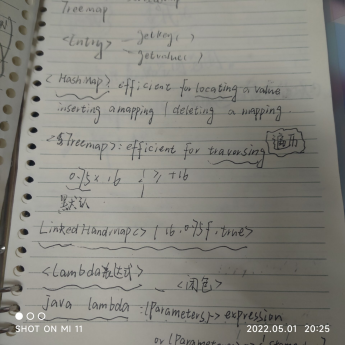 Treemap
<Entry> - getkey()
- getvalue()
<Hashmap> efficient for locating a value
inserting a mapping | deleting a mapping
<Treemap>: efficient for traversing 遍历
0.75 × 16
+16
默认
LinkedHashmap<>(16, 0.75f, true)
<Lambda表达式> - <闭包>
java lambda: (Parameters)-> expression
or (Parameters)
SHOT ON MI 11
2022.05.01 20:25